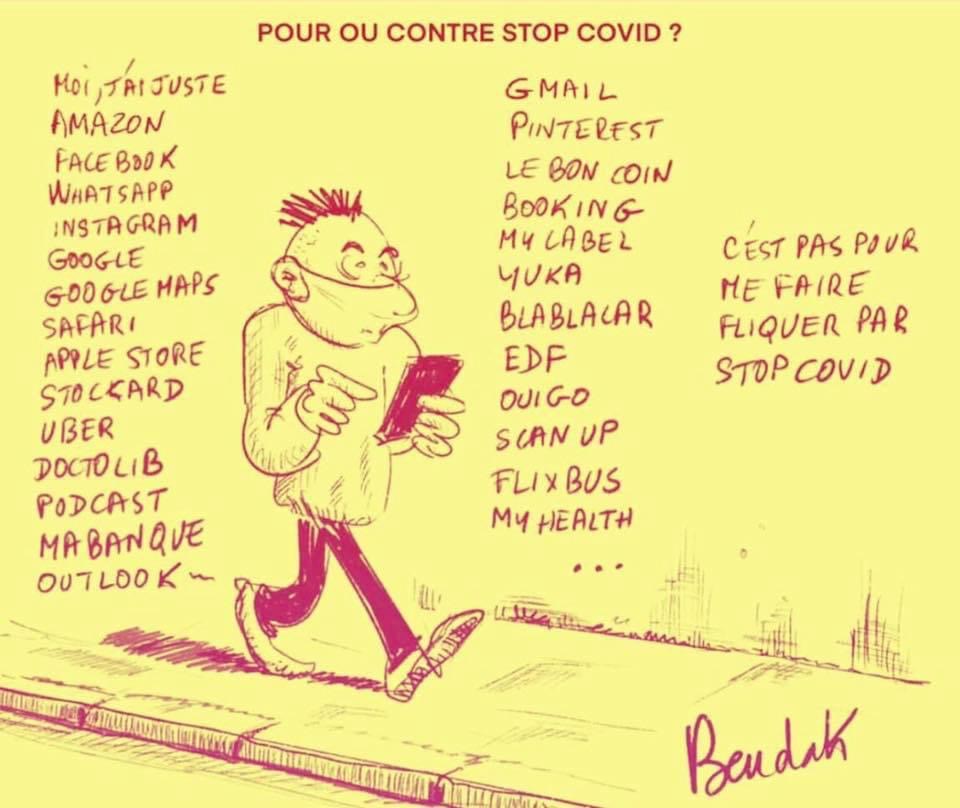 POUR OU CONTRE STOP COVID ?
MOI, J'AI JUSTE
AMAZON
FACEBOOK
WHATSAPP
INSTAGRAM
GOOGLE
GOOGLE MAPS
SAFARI
APPLE STORE
STOCKARD
UBER
DOCTOLIB
PODCAST
MA BANQUE
OUTLOOK
GMAIL
PINTEREST
LE BON COIN
BOOKING
MY LABEL
YUKA
BLABLACAR
EDF
OUIGO
SCAN UP
FLIXBUS
MY HEALTH
...
C'EST PAS POUR
ME FAIRE
FLIQUER PAR
STOP COVID
Bendak